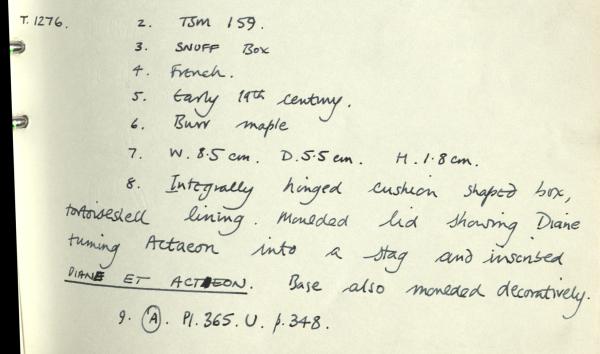 T.1276. 2. TSM 159.
3. SNUFF Box
4. French.
5. Early 19th century.
6. Burr maple
7. W. 8.5 cm. D. 5.5 cm. H. 1.8 cm.
8. Integrally hinged cushion shaped box,
tortoiseshell lining. Moulded lid showing Diane
turning Actaeon into a stag and inscribed
DIANE ET ACTÆON. Base also moulded decoratively.
9. (A). Pl. 365. U. p. 348.